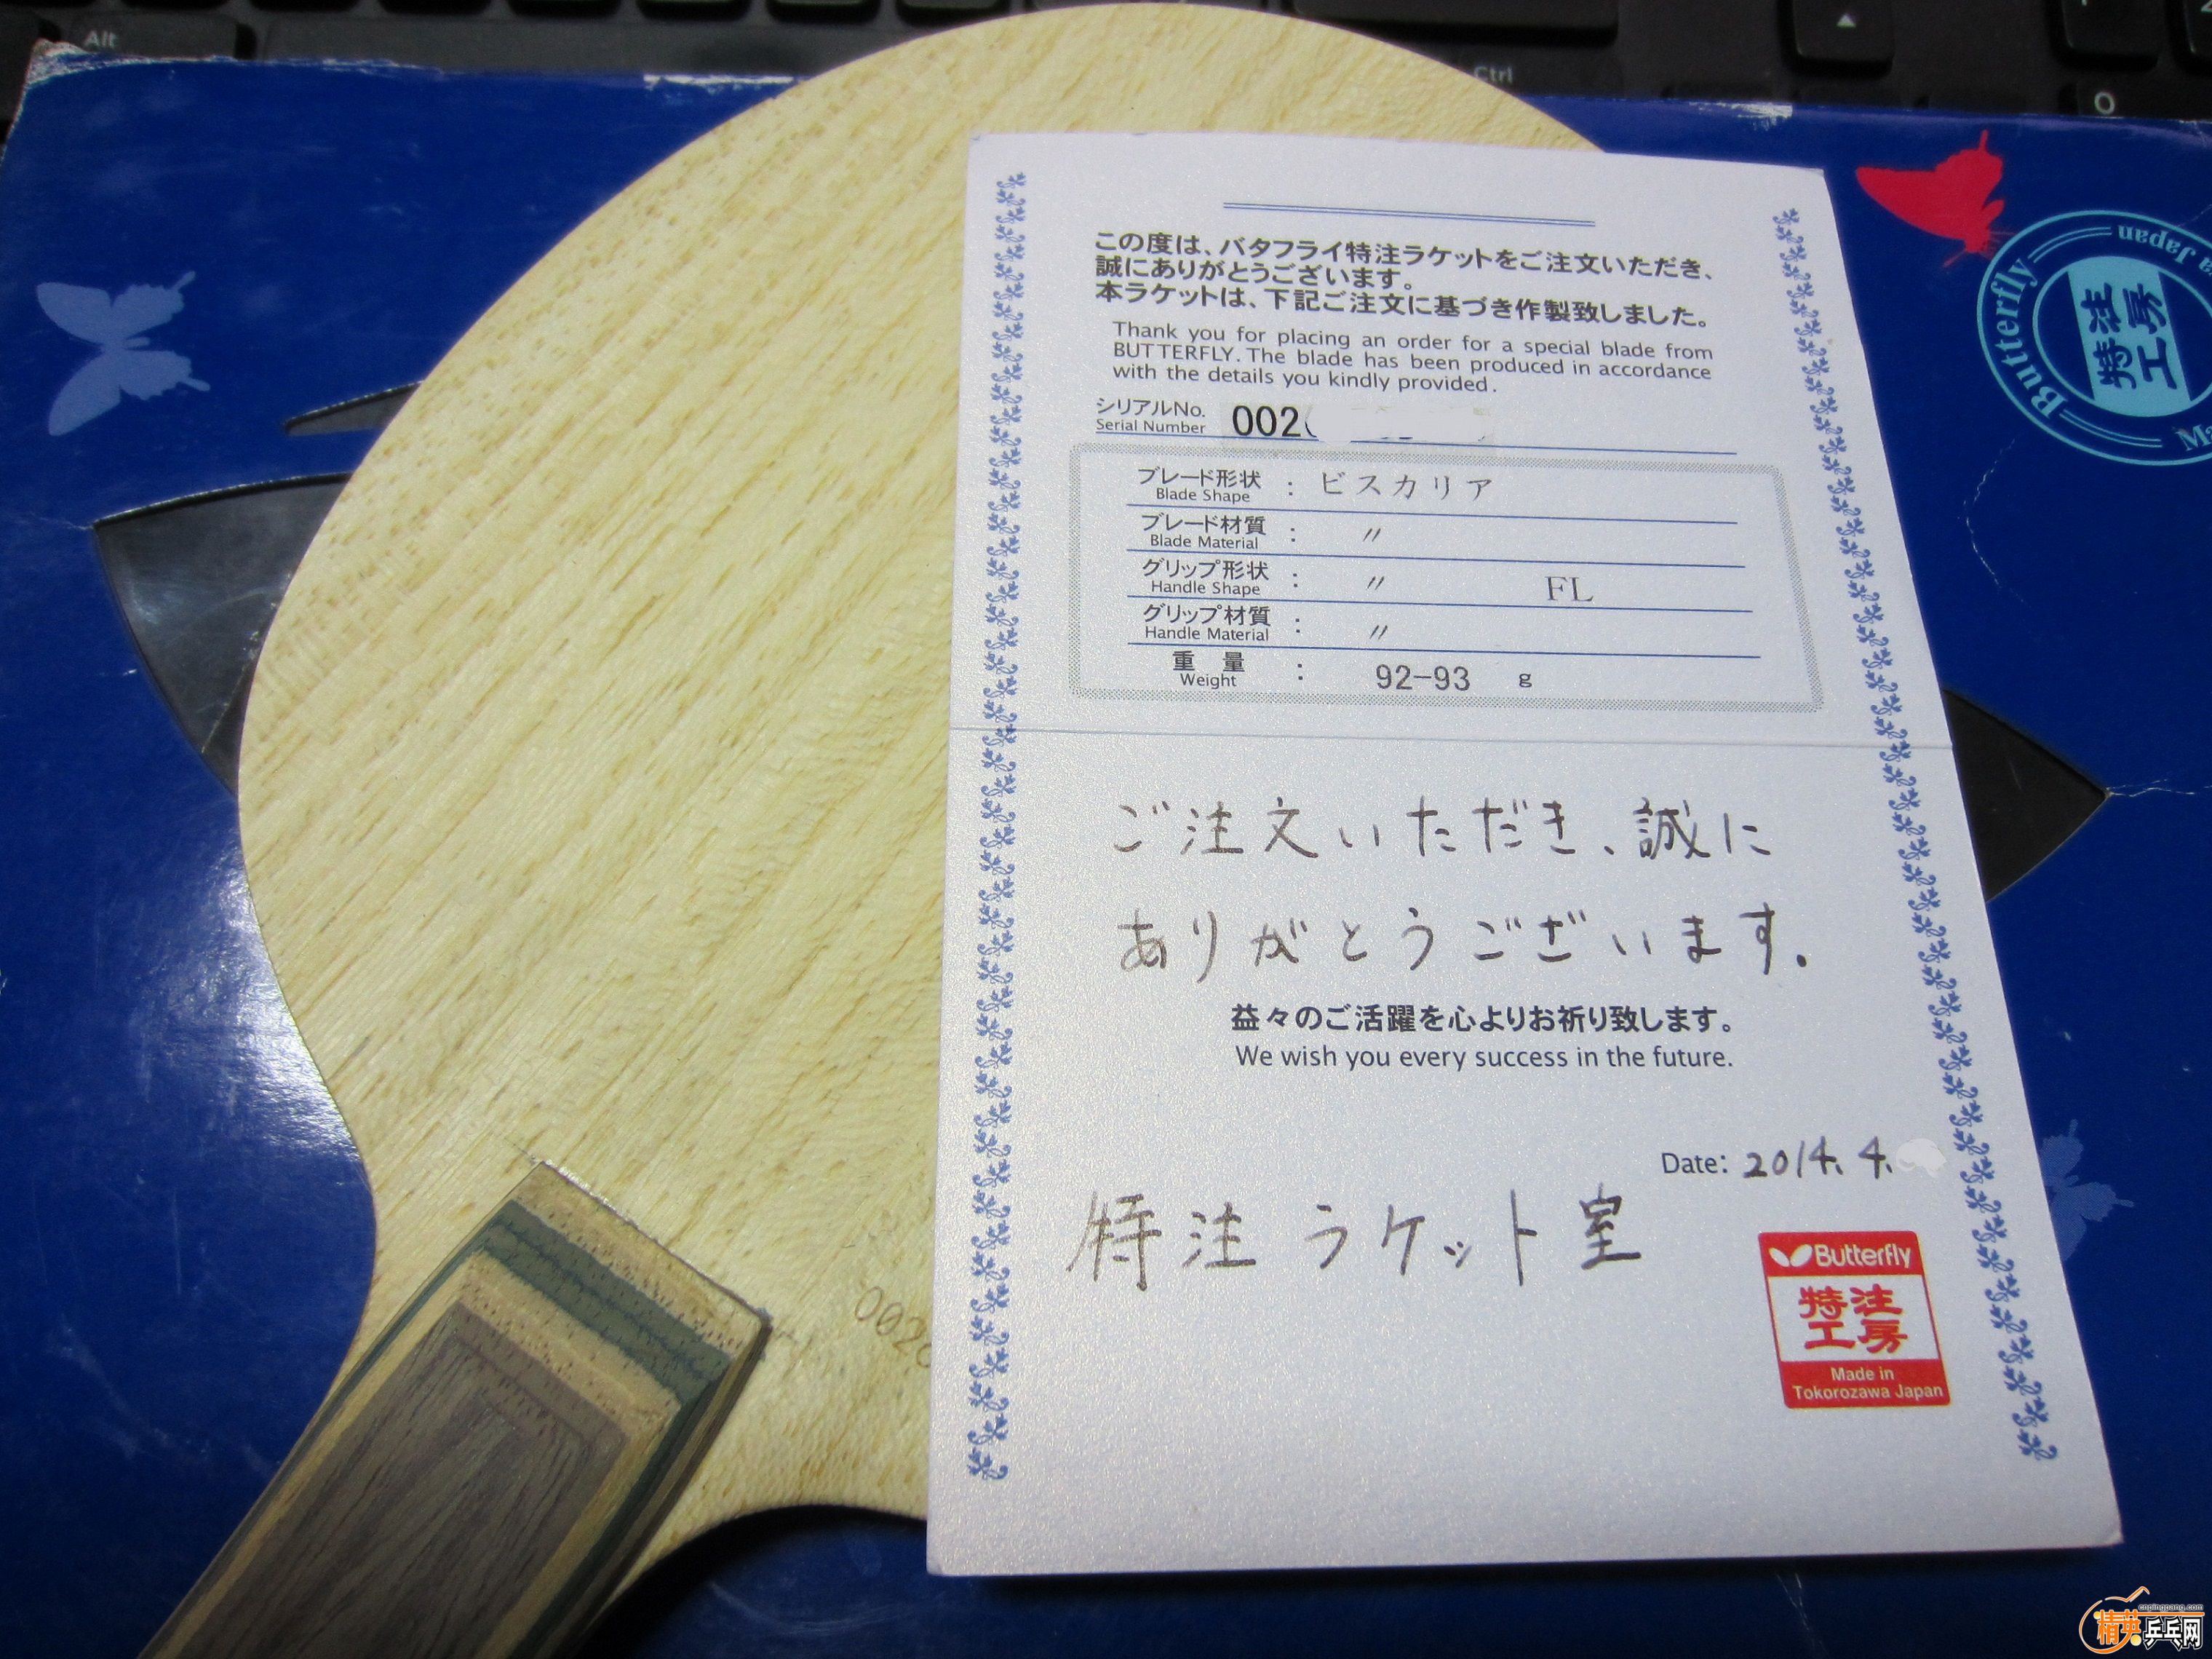 Alt
Ctrl
0
この度は、バタフライ特注ラケットをご注文いただき、
誠にありがとうございます。
本ラケットは、下記ご注文に基づき作製致しました。
Thank you for placing an order for a special blade from
BUTTERFLY. The blade has been produced in accordance
with the details you kindly provided.
シリアルNo.
Serial Number
002
ブレード形状
Blade Shape
: ビスカリア
ブレード材質
Blade Material
: 〃
グリップ形状
Handle Shape
: 〃 FL
グリップ材質
Handle Material
: 〃
重 量
Weight
: 92-93 g
ご注文いただき、誠に
ありがとうございます。
益々のご活躍を心よりお祈り致します。
We wish you every success in the future.
Date: 2014. 4.
特注ラケット室
Butterfly
特注
工房
Made in
Tokorozawa Japan
Butterfly
特注
工房
Japan
002
copingpang.com
精英乒乓网